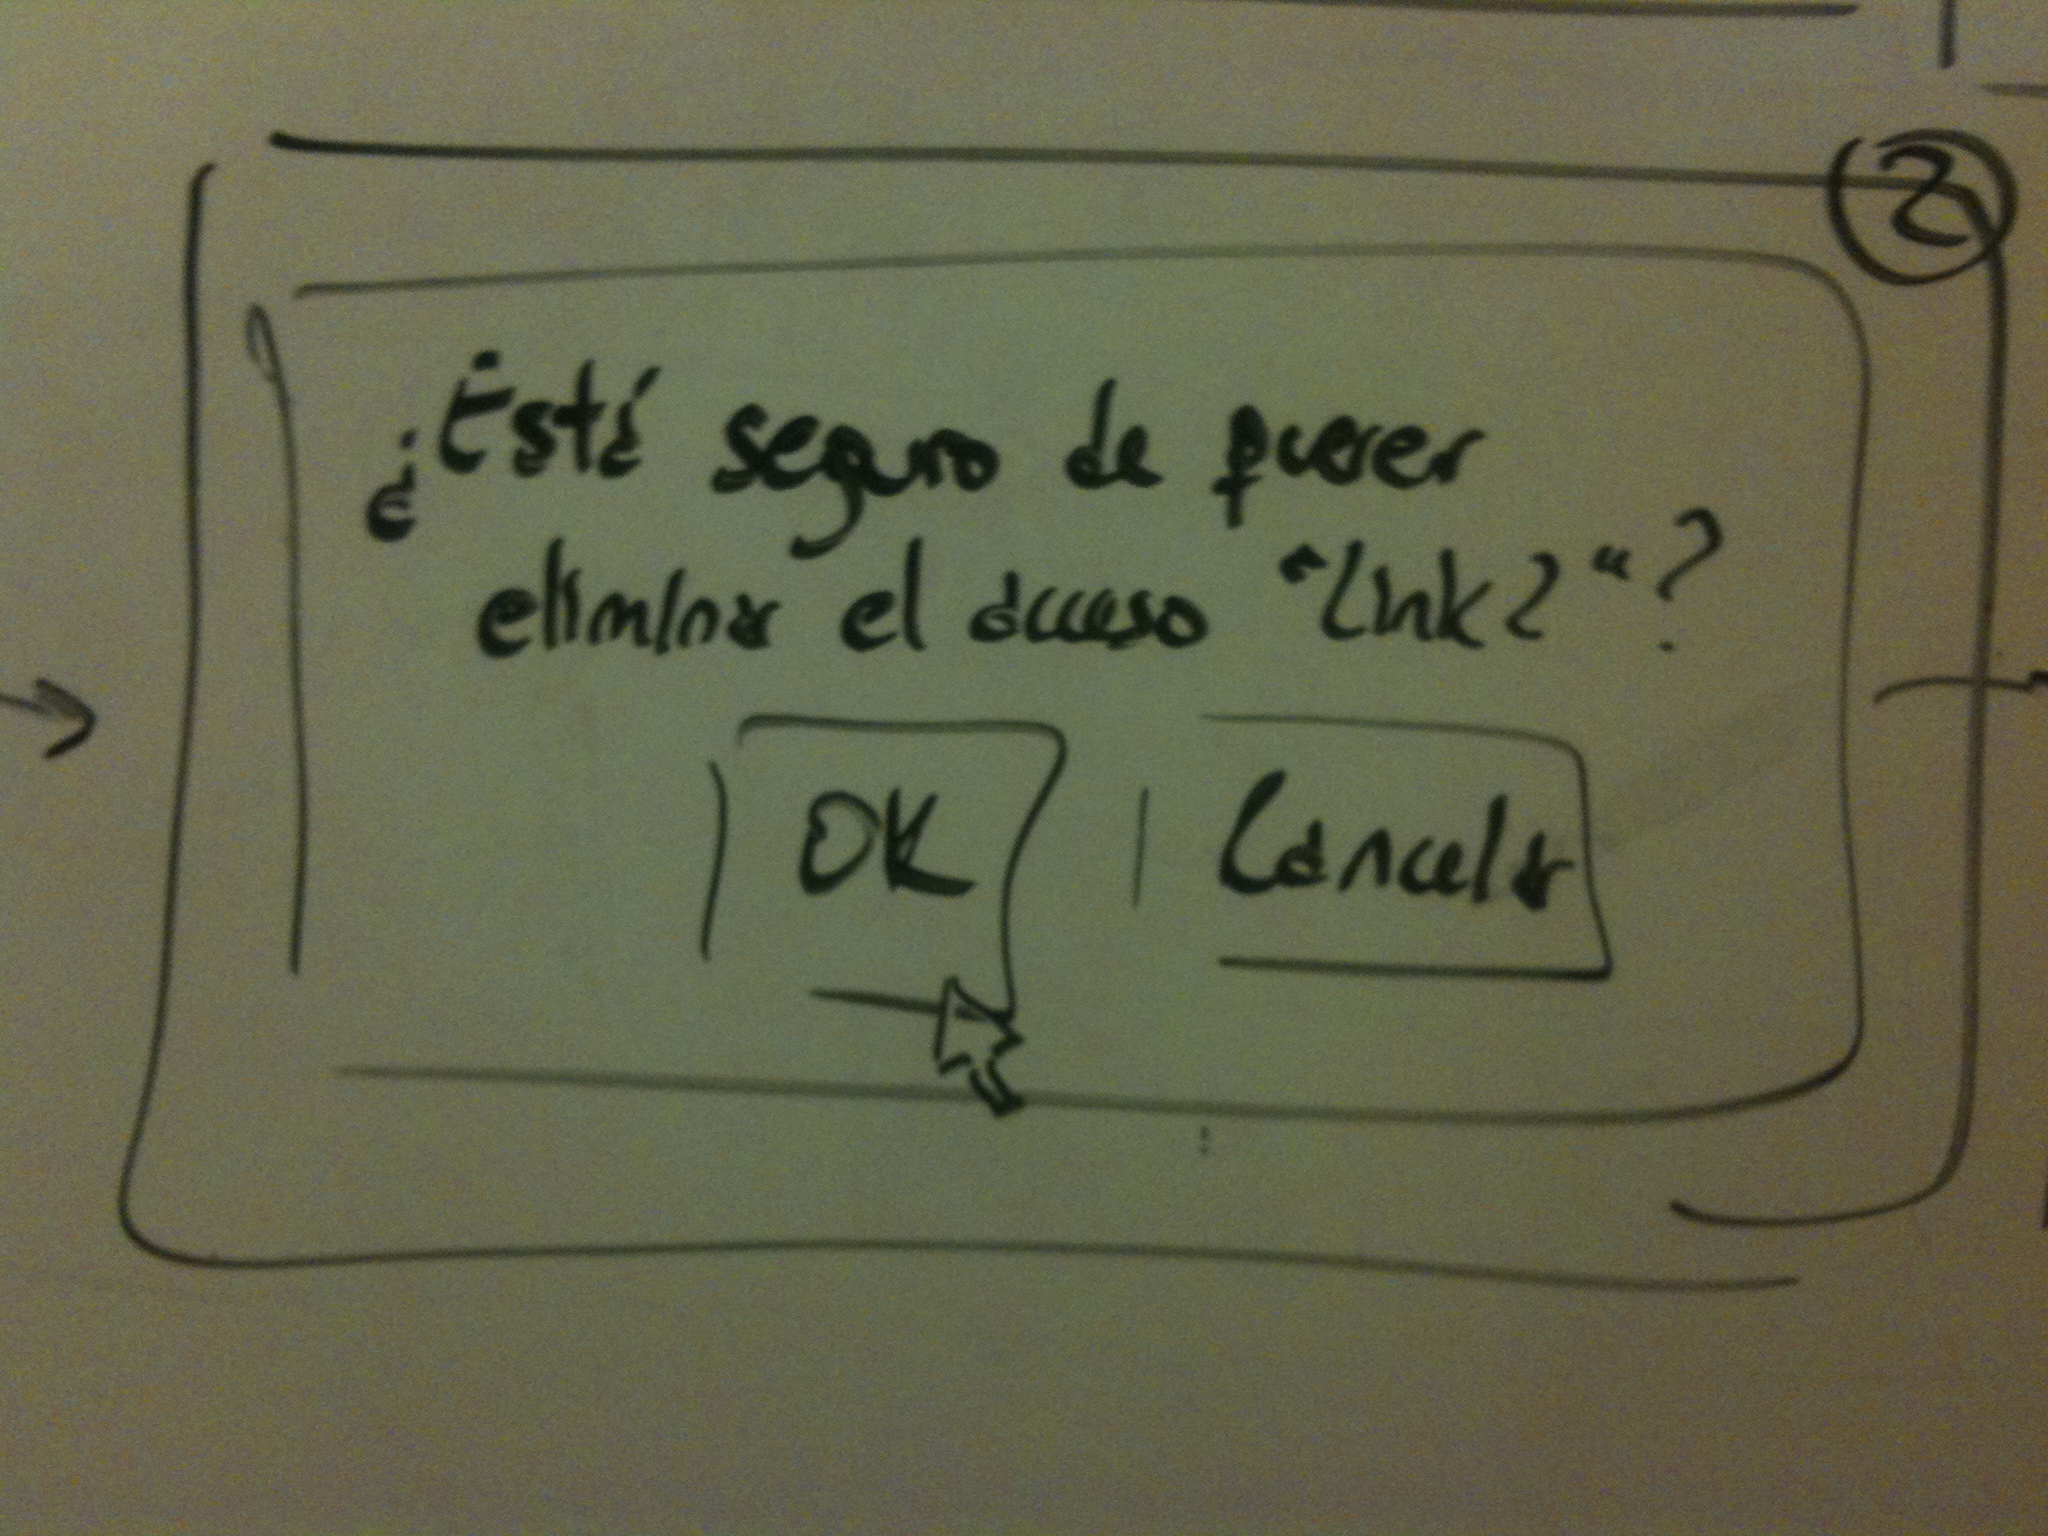 2
¿Está seguro de querer
eliminar el acceso "Link2"?
OK
Cancelar